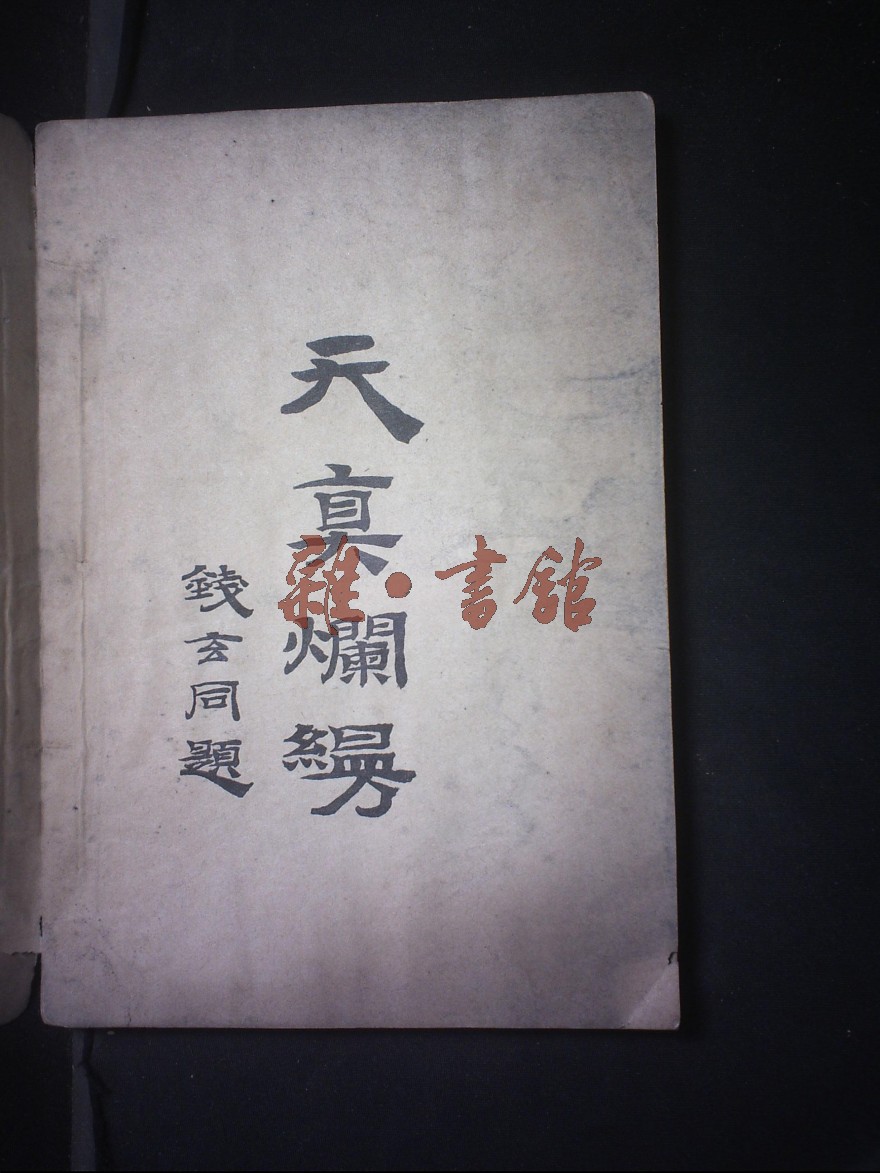 天真爛縵
錢玄同題
雜·書館